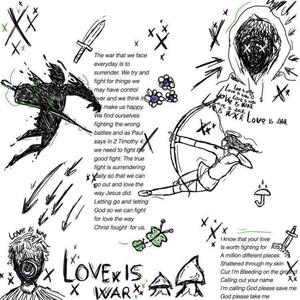 The war that we face
everyday is to
surrender. We try and
fight for things we
may have control
over and we think it
make us happy.
We find ourselves
fighting the wrong
battles and as Paul
says in 2 Timothy 4,
we need to fight the
good fight. The true
fight is surrendering
daily so that we can
go out and love the
way Jesus did.
Letting go and letting
God so we can fight
for love the way
Christ fought for us.
LOVE IS WAR
LOVE IS WAR
LOVE IS
WAR
I know that your love
Is worth fighting for
A million different pieces
Shattered through my skin
Cuz I'm Bleeding on the ground
Calling out your name
I'm calling God please save me
God please save me